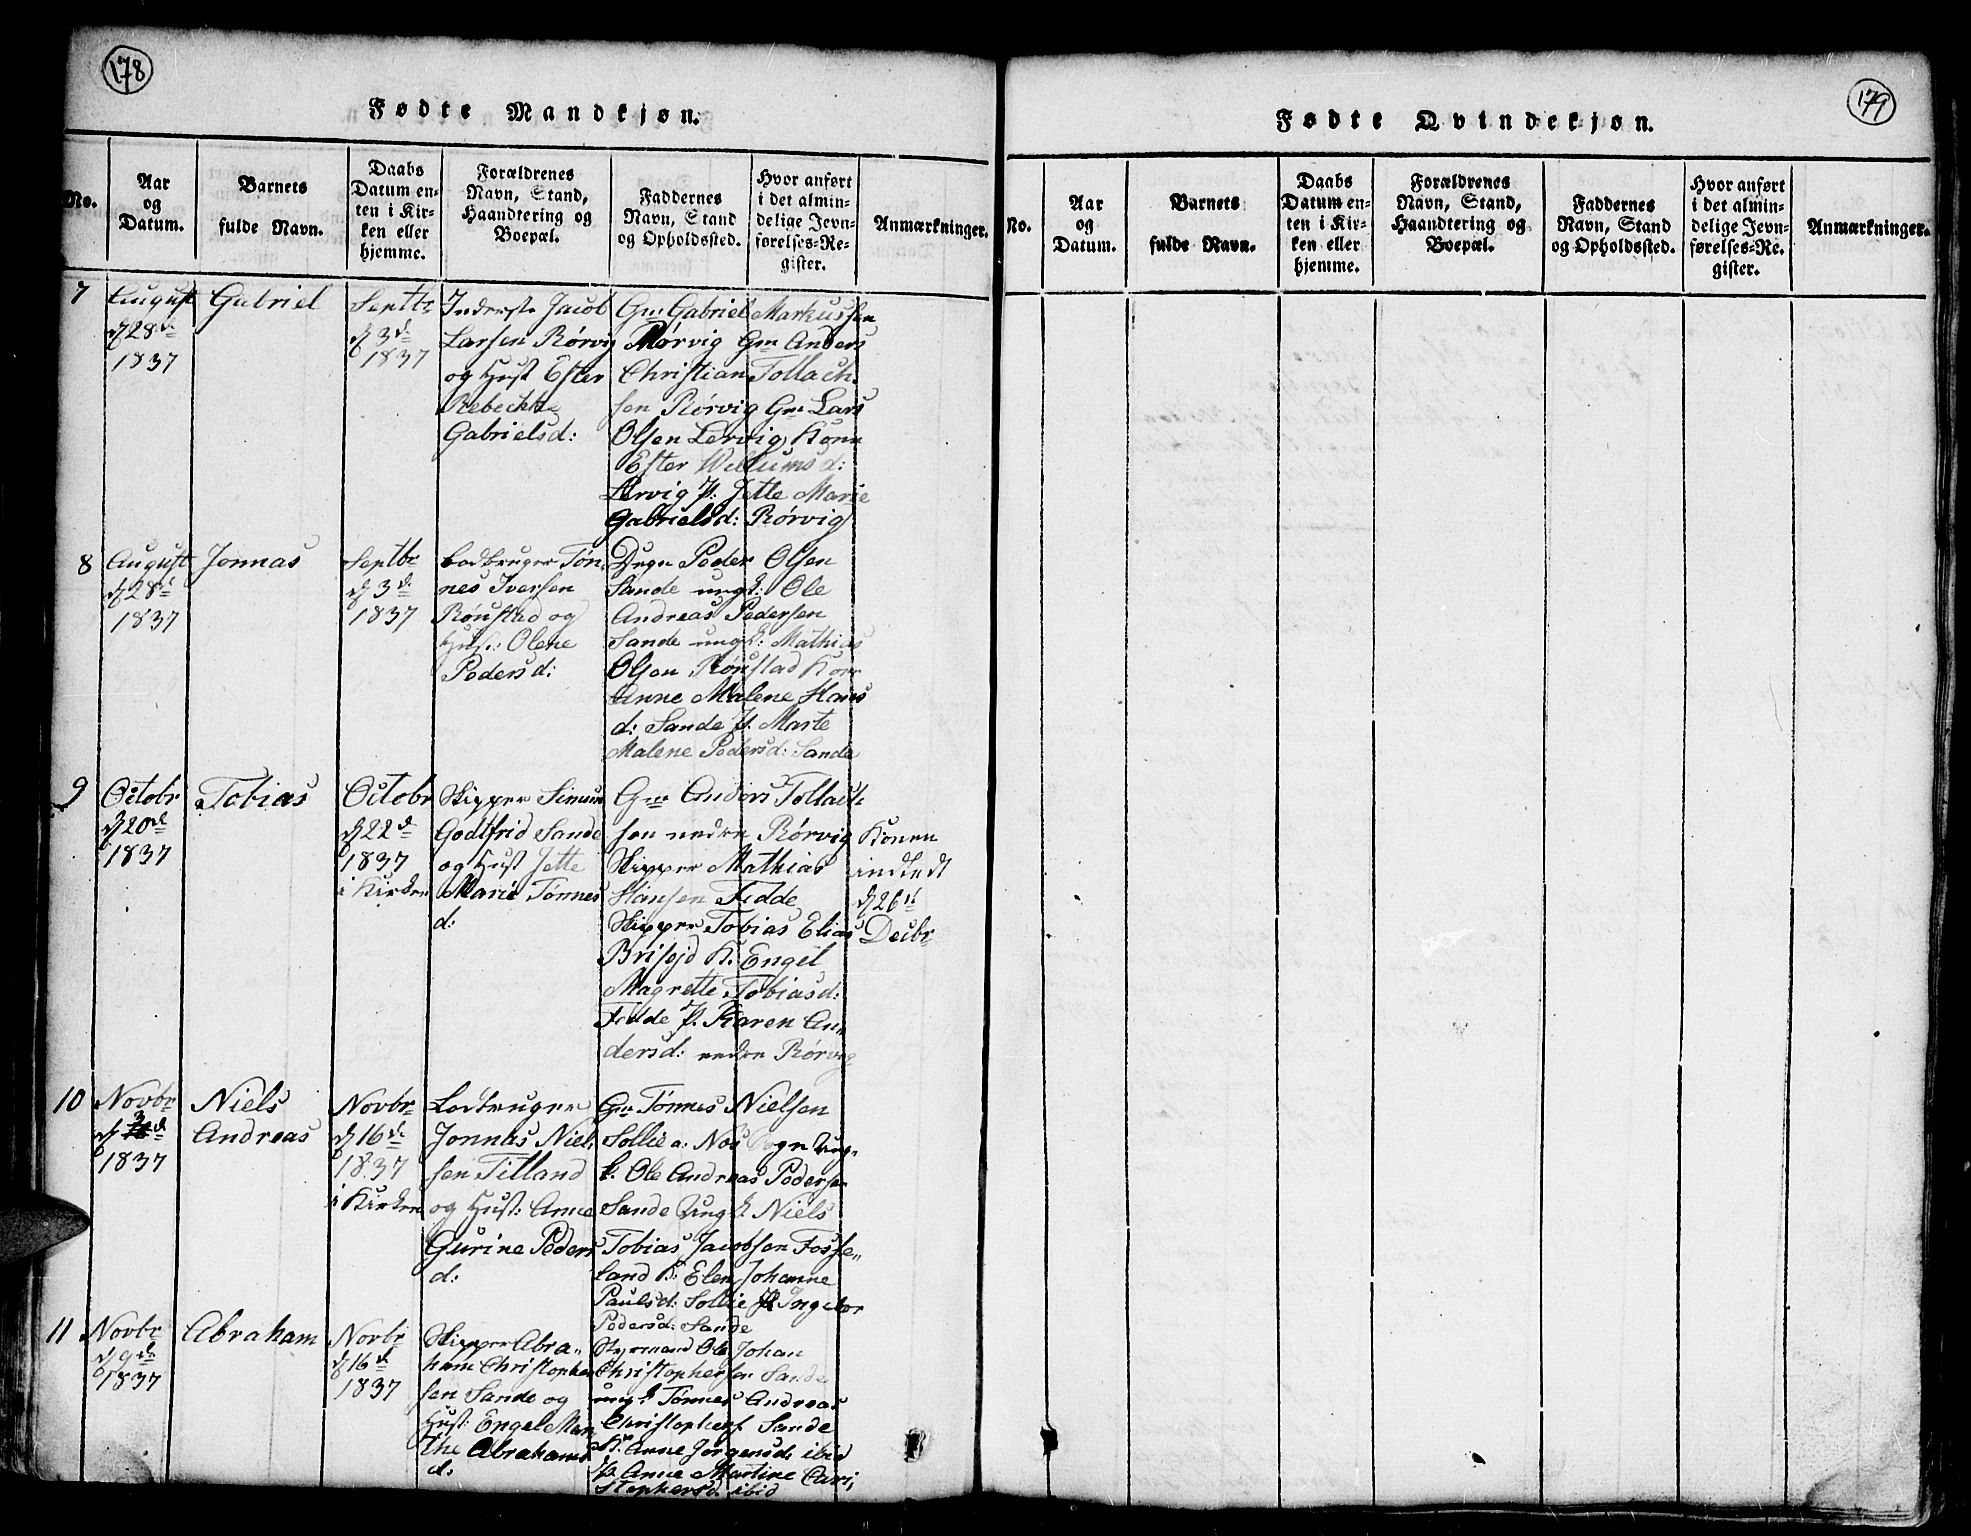 178
Fødte Mandkjøn.
No.
Aar
og
Datum.
Barnets
fulde Navn.
Daabs
Datum en-
ten i Kir-
ken eller
hjemme.
Forældrenes
Navn, Stand,
Haandtering og
Boepæl.
Faddernes
Navn, Stand
og Opholdssted.
Hvor anført
i det almin-
delige Jevn-
førelses-Re-
gister.
Anmærkninger.
7
August
d 28de
1837
Gabriel
Septbr
d 3d
1837
Inderste Jacob
Larsen Rørvig
og Hust Ester
Rebekke
Gabrielsd:
Gm Gabriel Markussen
Rørvig Gm Anders
Christian Tollach
sen Rørvig Gm Lars
Olsen Lervig Kone
Ester Willumsd:
Lervig P. Jette Marie
Gabrielsd: Rørvig
8
August
d 28d
1837
Jonnas
Septbr
d 3d
1837
Lodbruger Tøn
nes Iversen
Rønstad og
Hust: Olene
Pedersd:
Degn Peder Olsen
Sande ungk: Ole
Andreas Pedersen
Sande ungk: Mathias
Olsen Rønstad Kone
Anne Malene Hans
d: Sande P. Marte
Malene Pedersd: Sande
9
Octobr
d 20de
1837
Tobias
Octobr
d 22d
1837
i Kirken
Skipper Simun
Godtfrid Sande
og Hust Jette
Marie Tønnes
d:
Gm Anders Tollach
sen nedre Rørvig
Skipper Mathias
Hansen Fedde
Skipper Tobias Elias
K. Engel
Magrette Tobiasd:
Fedde P. Karen An
dersd: nedre Rørvig
Konen
indledt
d 26d
Decbr
10
Novbr
d 3d
1837
Niels
Andreas
Novbr
d 16d
1837
i Kirken
Lodbruger
Jonnas Niel
sen Tilland
og Hust: Anne
Gurine Peders
d:
Gm Tønnes Nielsen
Sollie a: Nos Sogn Ung
k. Ole Andreas Pedersen
Sande Ungk Niels
Tobias Jacobsen Fosse
land K: Elen Johanne
Paulsd: Sollie P Ingebor
Pedersd: Sande
11
Novbr
d 9de
1837
Abraham
Novbr
d 16d
1837
Skipper Abra-
ham Christopher
sen Sande og
Hust: Engel Mar
the Abrahams
d:
Styrmand Ole Johan
Christophersen Sande
ungk Tønnes Andreas
Christophers Sande
K. Anne Jørgensd: ibid
P. Anne Martine Chri
stophersd. ibid
179
Fødte Qvindekjøn.
No.
Aar
og
Datum.
Barnets
fulde Navn.
Daabs
Datum en-
ten i Kir-
ken eller
hjemme.
Forældrenes
Navn, Stand,
Haandtering og
Boepæl.
Faddernes
Navn, Stand
og Opholdssted.
Hvor anført
i det almin-
delige Jevn-
førelses-Re-
gister.
Anmærkninger.